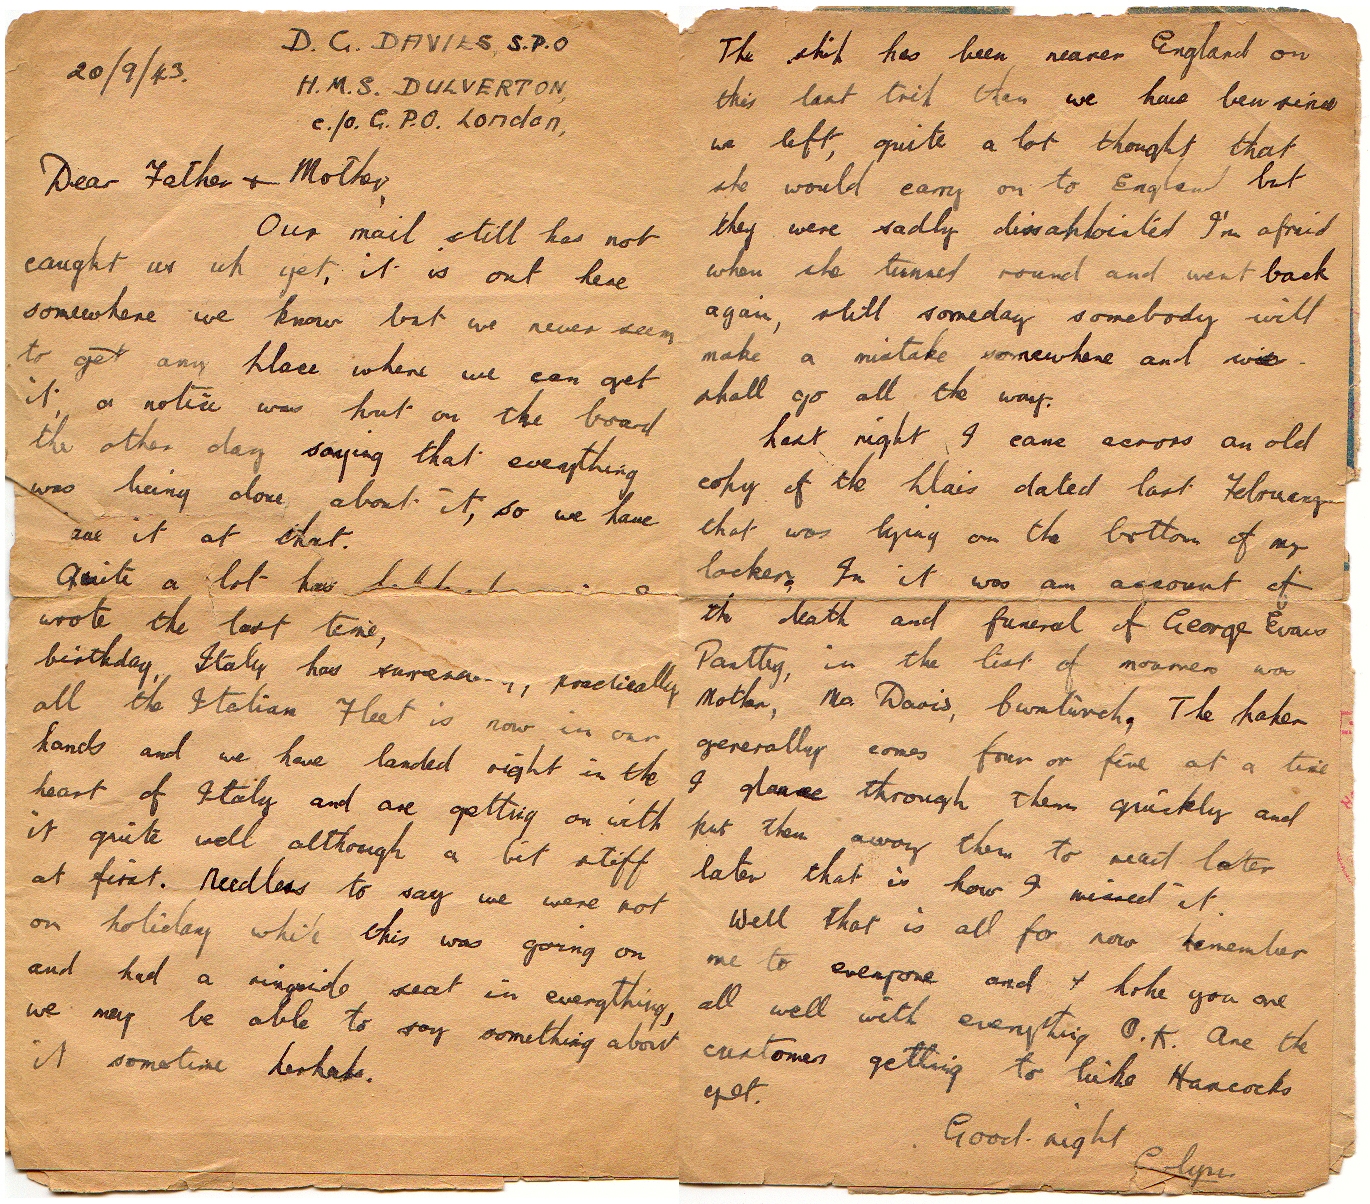 20/9/43.
D. G. DAVIES S.P.O
H.M.S. DULVERTON,
c./o. G.P.O. London,
Dear Father + Mother,
Our mail still has not
caught us up yet, it is out here
somewhere we know but we never seem
to get any place where we can get
it, a notice was put on the board
the other day saying that everything
was being done about it, so we have
it at that.
Quite a lot has
wrote the last time,
birthday, Italy has practically
all the Italian Fleet is now in our
hands and we have landed right in the
heart of Italy and are getting on with
it quite well although a bit stiff
at first. Needless to say we were not
on holiday while this was going on
and had a ringside seat in everything,
we may be able to say something about
it sometime perhaps.
The ship has been nearer England on
this last trip than we have been since
we left, quite a lot thought that
she would carry on to England but
they were sadly dissappointed I'm afraid
when she turned round and went back
again, still someday somebody will
make a mistake somewhere and
shall go all the way.
Last night I came across an old
copy of the Llais dated last February
that was lying on the bottom of my
locker, In it was an account of
the death and funeral of George Evans
Pantty, in the list of mourners was
Mother, Mrs Davis, The paper
generally comes four or five at a time
I glance through them quickly and
put them away them to read later
later that is how I missed it.
Well that is all for now remember
me to everyone and I hope you are
all well with everything O.K. Are the
customers getting to like Hancocks
yet.
Good-night
Eolyn